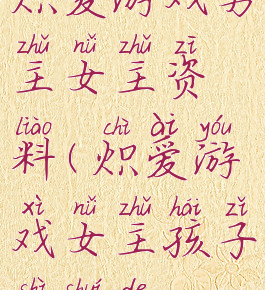 炽爱游戏男
zhǔ nǚ zhǔ zī
主女主资
liào chì ài yóu
料(炽爱游
xì nǚ zhǔ hái zǐ
戏女主孩子
chì chuí de